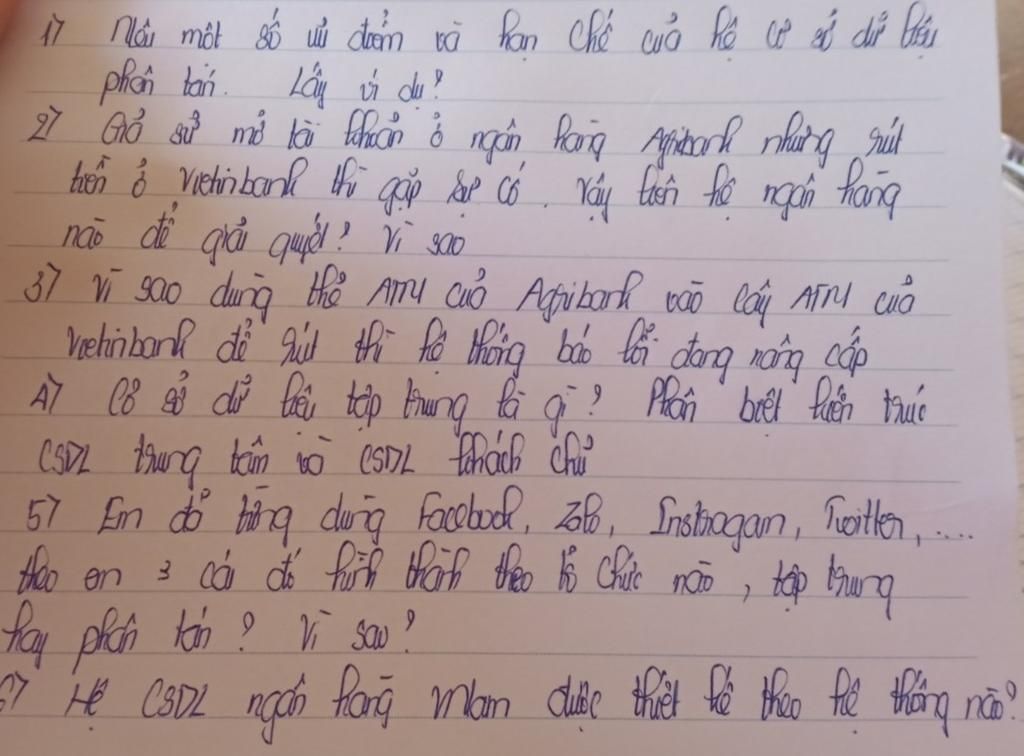 1) Nêu một số ưu điểm và hạn chế của hệ cơ sở dữ liệu
phân tán. Lấy ví dụ?
2) Giả sử mở tài khoản ở ngân hàng Agribank nhưng rút
tiền ở Viettinbank thì gặp sự cố. Vậy liên hệ ngân hàng
nào để giải quyết? Vì sao
3) Vì sao dùng thẻ ATM của Agribank vào cây ATM của
Viettinbank để rút thì hệ thống báo lỗi đang nâng cấp
4) Cơ sở dữ liệu tập trung là gì? Phân biệt kiến trúc
CSDL trung tâm và CSDL khách chủ
5) Em đã từng dùng Facebook, Zalo, Instragam, Twitter, ....
theo em 3 cái đó hình thành theo tổ chức nào, tập trung
hay phân tán? Vì sao?
6) Hệ CSDL ngân hàng VNam được thiết kế theo hệ thống nào?